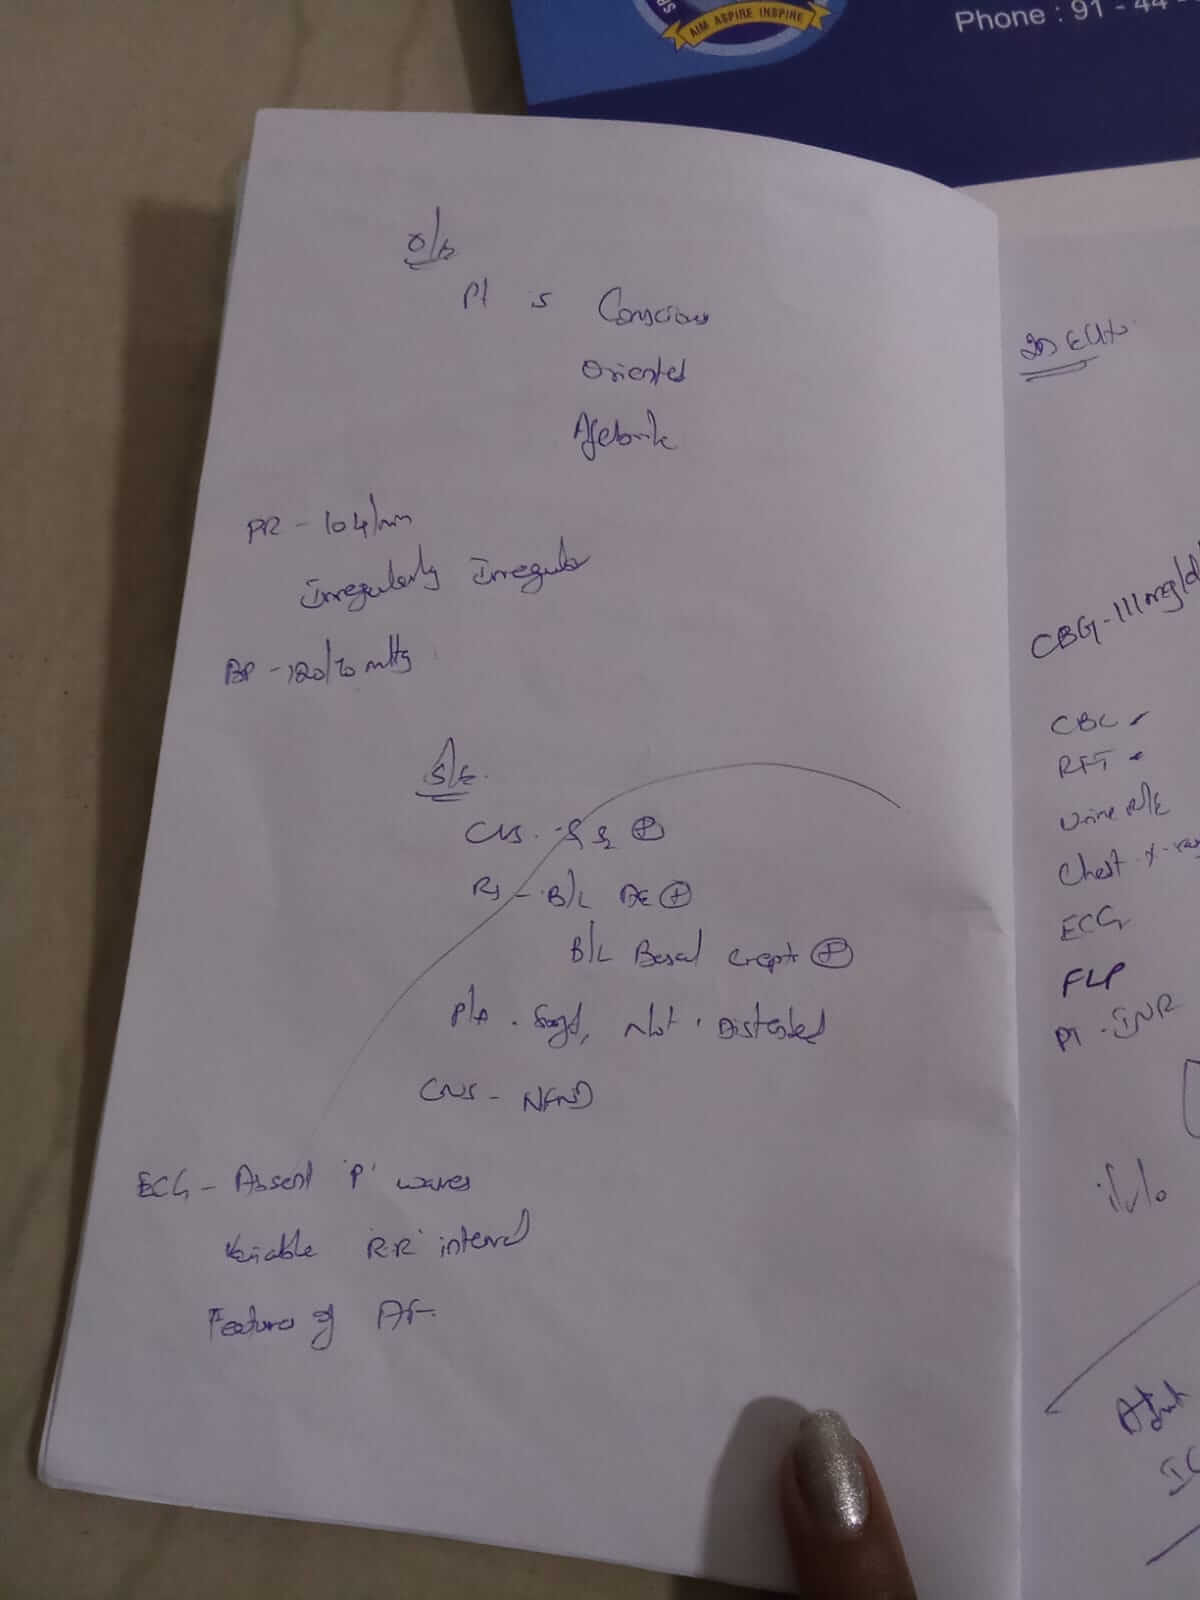 AIM ASPIRE INSPIRE
Phone : 91 - 44 -
O/E
Pt is Conscious
Oriented
Afebrile
PR - 104/min
Irregularly Irregular
BP - 120/70 mmHg
S/E
CVS - S1 S2 (+)
RS - B/L AE (+)
B/L Basal crepts (+)
P/A - Soft, Not Distended
CNS - NFND
ECG - Absent 'P' waves
Variable 'RR' interval
Features of AF
CBG - 111 mg/dl
CBC
RFT
Urine R/E
Chest X-ray
ECG
FLP
PT - INR